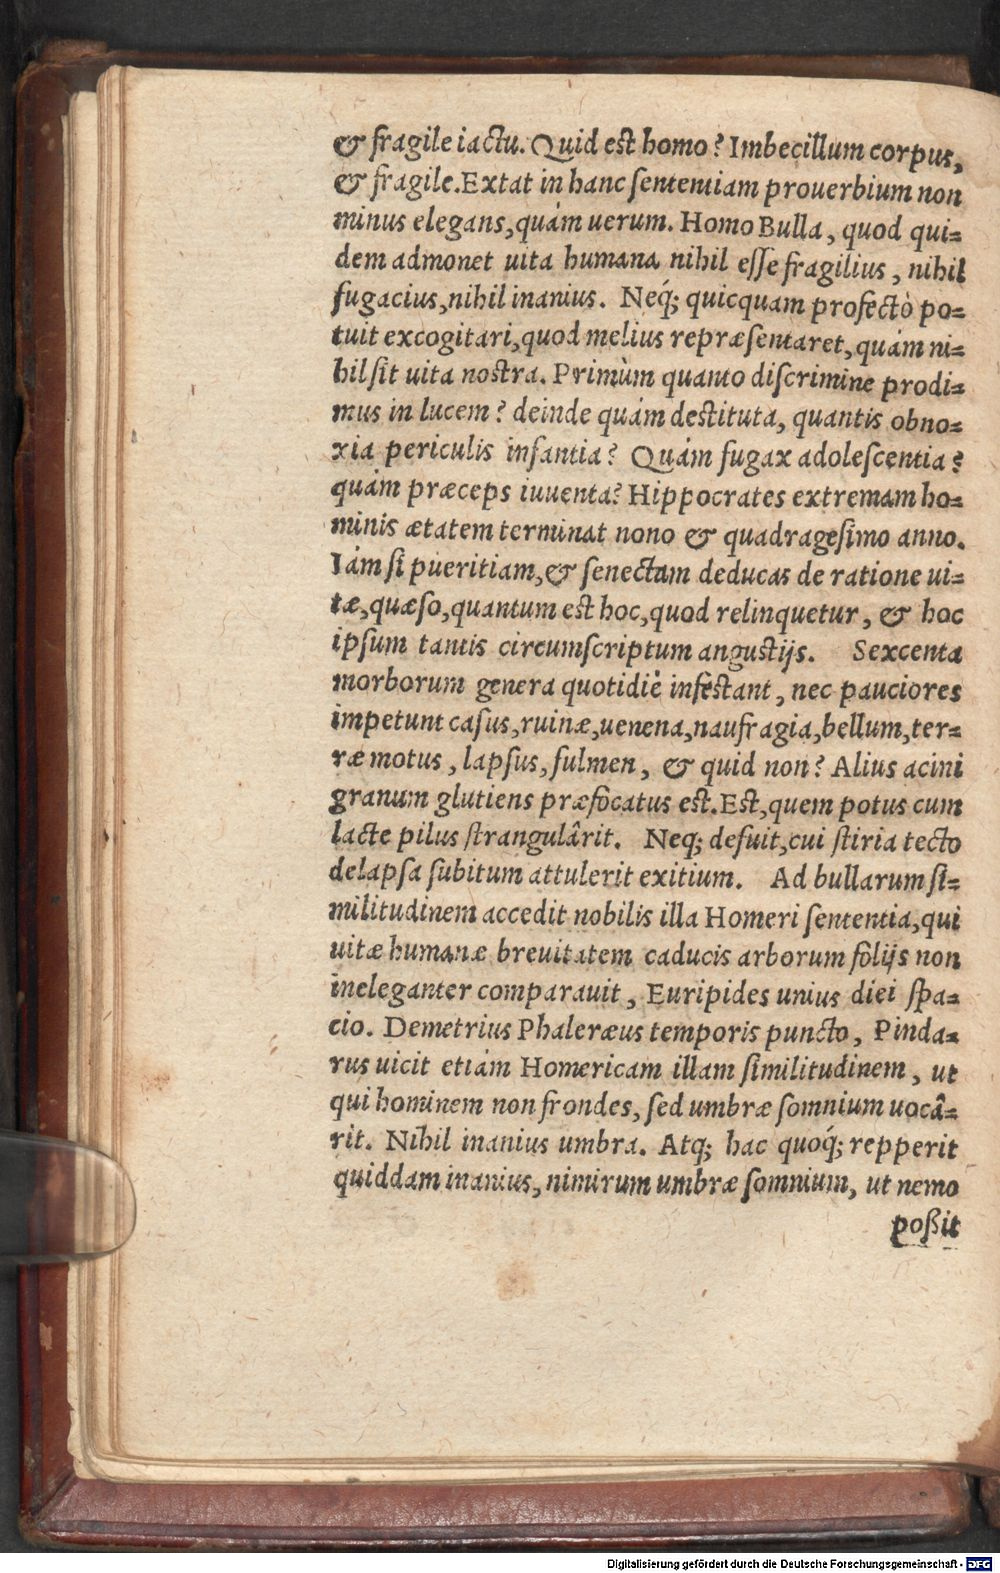 & fragile iactu. Quid est homo? Imbecillum corpus,
& fragile. Extat in hanc sententiam prouerbium non
minus elegans, quám uerum. Homo Bulla, quod qui=
dem admonet uita humana nihil esse fragilius, nihil
fugacius, nihil inanius. Neq́; quicquam profectò po=
tuit excogitari, quod melius repræsentaret, quám ni=
hil sit uita nostra. Primùm quanto discrimine prodi=
mus in lucem? deinde quám destituta, quantis obno=
xia periculis infantia? Quám fugax adolescentia?
quám præceps iuuenta? Hippocrates extremam ho=
minis ætatem terminat nono & quadragesimo anno.
Iám si pueritiam, & senectam deducas de ratione ui=
tæ, quæso, quantum est hoc, quod relinquetur, & hoc
ipsum tantis circumscriptum angustijs. Sexcenta
morborum genera quotidiè infestant, nec pauciores
impetunt casus, ruinæ, uenena, naufragia, bellum, ter=
ræ motus, lapsus, fulmen, & quid non? Alius acini
granum glutiens præfocatus est. Est, quem potus cum
lacte pilus strangulârit. Neq; defuit, cui stiria tecto
delapsa subitum attulerit exitium. Ad bullarum si=
militudinem accedit nobilis illa Homeri sententia, qui
uitæ humanæ breuitatem caducis arborum folijs non
ineleganter comparauit, Euripides unius diei spa=
cio. Demetrius Phaleræus temporis puncto, Pinda=
rus uicit etiám Homericam illam similitudinem, ut
qui hominem non frondes, sed umbræ somnium uocâ=
rit. Nihil inanius umbra. Atq; hac quoq́; repperit
quiddam inanius, nimirum umbræ somnium, ut nemo
poßit
Digitalisierung gefördert durch die Deutsche Forschungsgemeinschaft - DFG